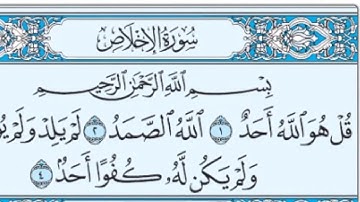 سُورَةُ الْإِخْلَاصِ
بِسْمِ اللَّهِ الرَّحْمَٰنِ الرَّحِيمِ
قُلْ هُوَ اللَّهُ أَحَدٌ ١ اللَّهُ الصَّمَدُ ٢ لَمْ يَلِدْ وَلَمْ
وَلَمْ يَكُن لَّهُۥ كُفُوًا أَحَدٌۢ ٤